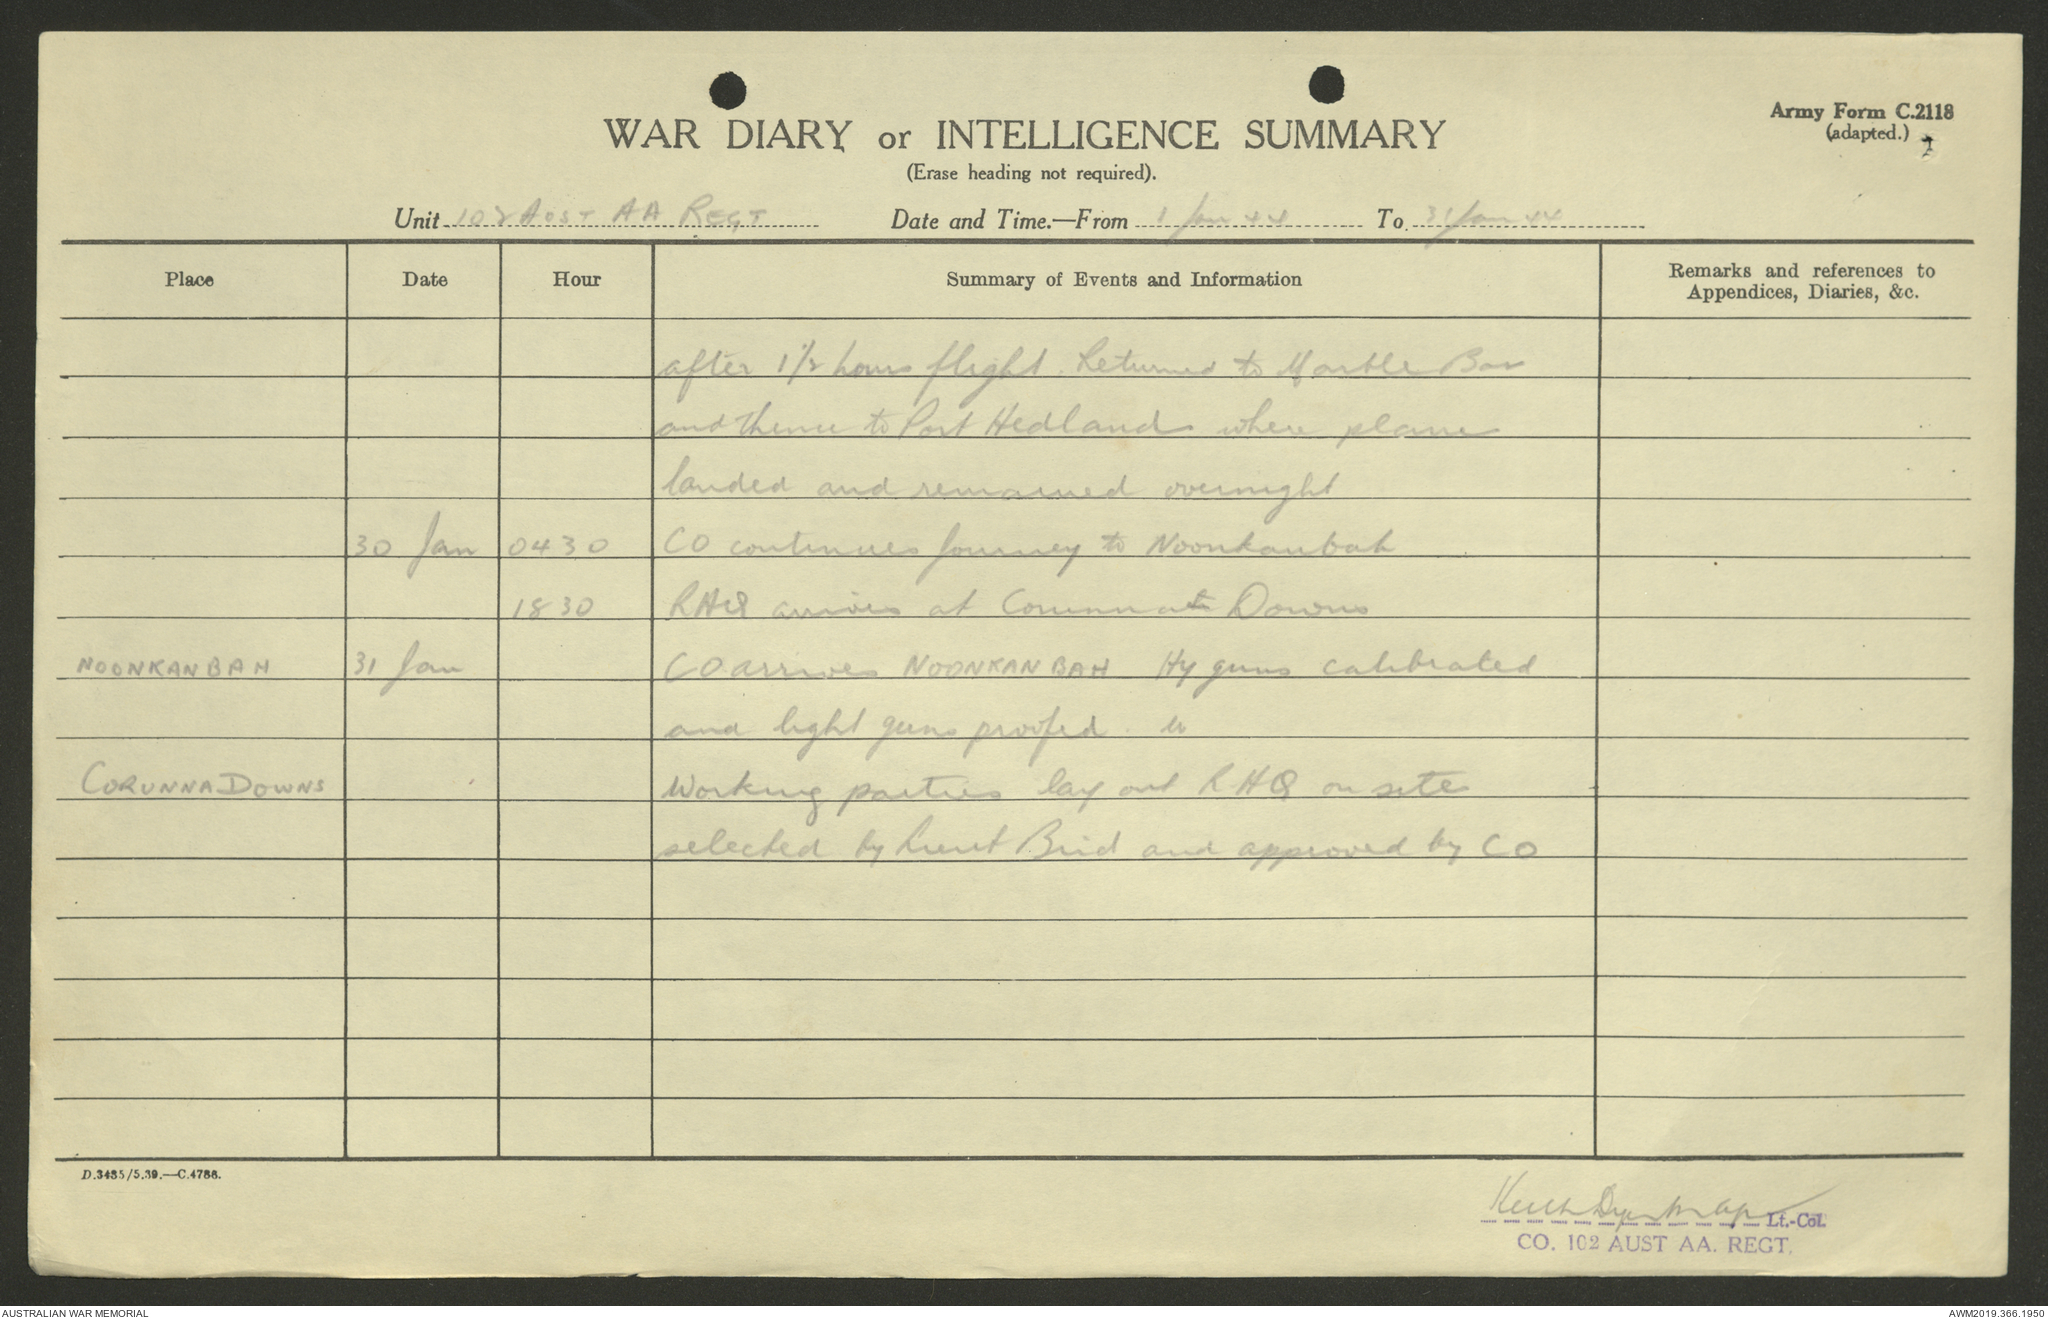 WAR DIARY or INTELLIGENCE SUMMARY
(Erase heading not required).
Army Form C.2118
(adapted.) 7
Unit 102 AUST AA REGT Date and Time.—From 1 Jan 44 To 31 Jan 44
Place Date Hour Summary of Events and Information Remarks and references to
Appendices, Diaries, &c.
after 1½ hours flight. Returned to Marble Bar
and thence to Port Hedland where plane
landed and remained overnight
30 Jan 0430 CO continues journey to Noonkanbah
1830 RHQ arrives at Corunna Downs
NOONKANBAH 31 Jan CO arrives NOONKANBAH Hy guns calibrated
and light guns proofed.
CORUNNA DOWNS Working parties lay out RHQ on site
selected by Lieut Bird and approved by CO
D.3435/5.39.—C.4786.
Lt.-Col.
CO. 102 AUST AA. REGT.
AUSTRALIAN WAR MEMORIAL AWM2019.366.1950